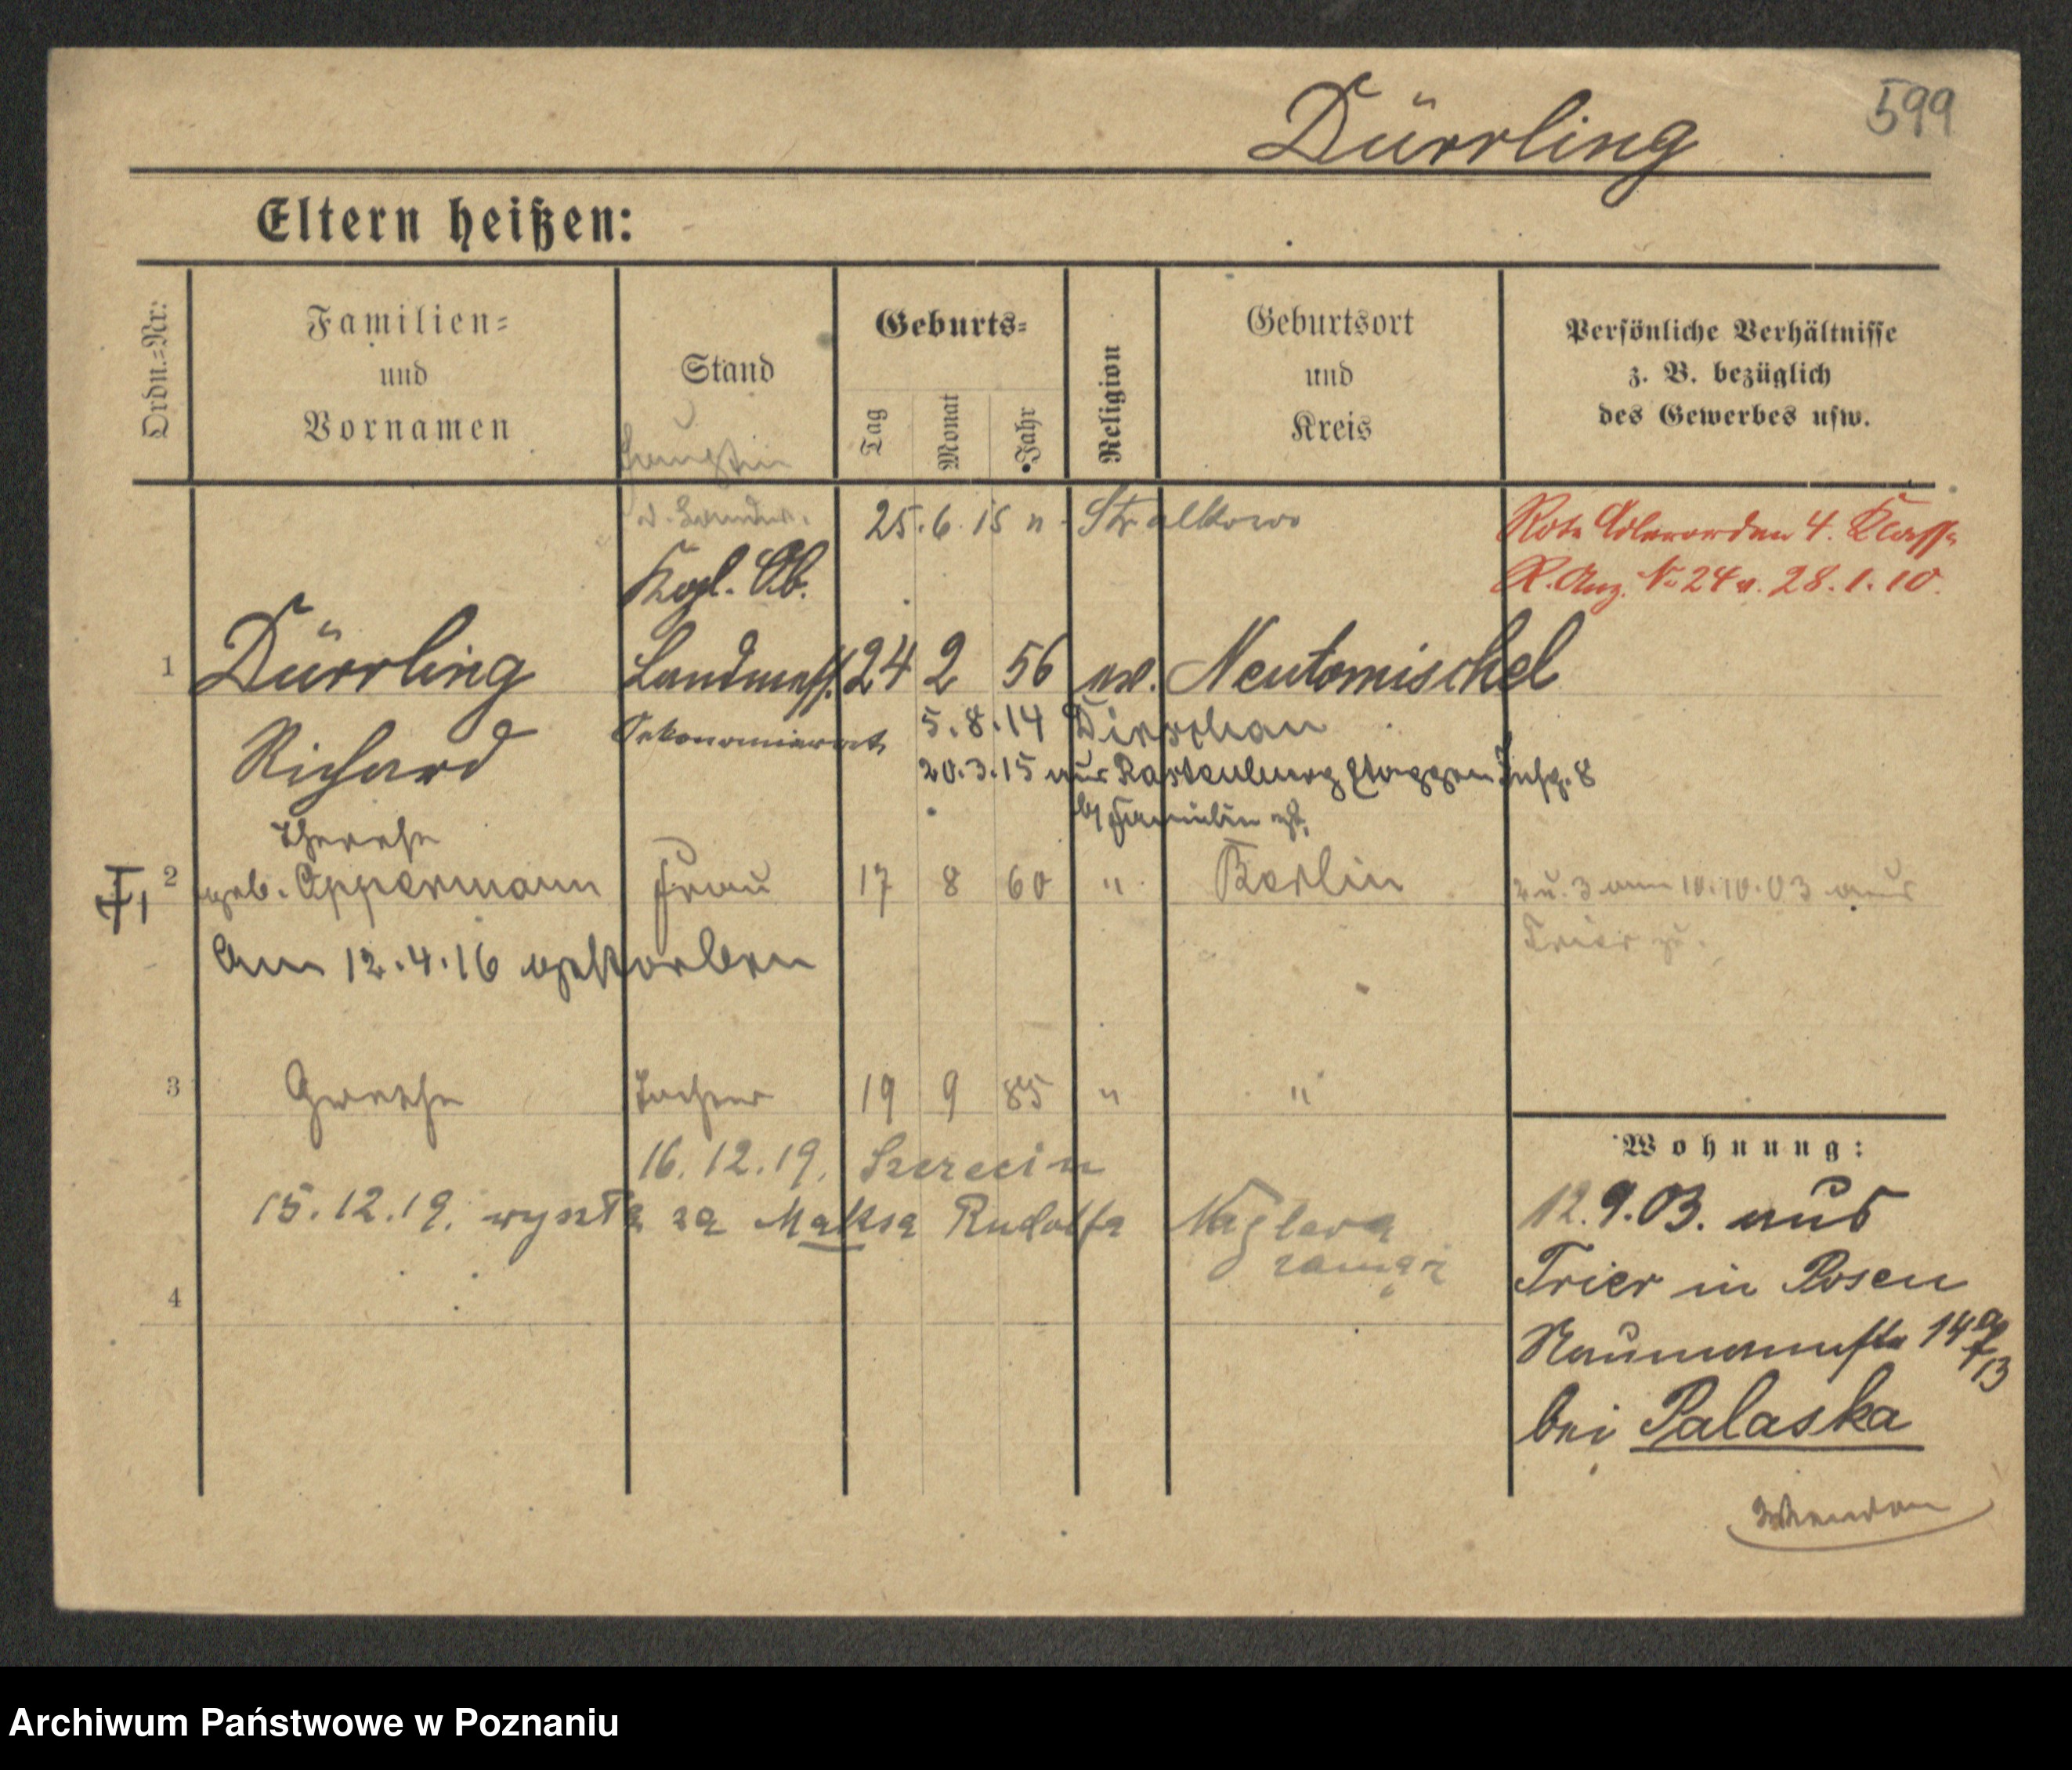 599
Dürrling
Eltern heißen:
Ordn.-Nr:
Familien-
und
Vornamen
Stand
Geburts-
Tag
Monat
Jahr
Religion
Geburtsort
und
Kreis
Persönliche Verhältnisse
z. B. bezüglich
des Gewerbes usw.
25.6.15 n. Stralkowo
Rote Adlerorden 4. Klasse
R. Anz. No 24 v. 28.1.10.
Kgl. Ob.
1 Dürrling Landmess. 24 2 56 ev. Neutomischel
Richard Oekonomierat 5.8.14 Dirschau
20.3.15 aus Rastenburg
Therese
2 geb. Oppermann Frau 17 8 60 " Berlin 2 u. 3 am 10.10.03 aus
Trier zu.
Am 12.4.16 gestorben
3 Grethe Tochter 19 9 85 " "
16.12.19. Szczecin
15.12.19. wyszła za Maksa Rudolfa Naglera
zamąż
4
Wohnung:
12.9.03. aus
Trier in Posen
Naumannstr 14a
bei Palaska
Archiwum Państwowe w Poznaniu